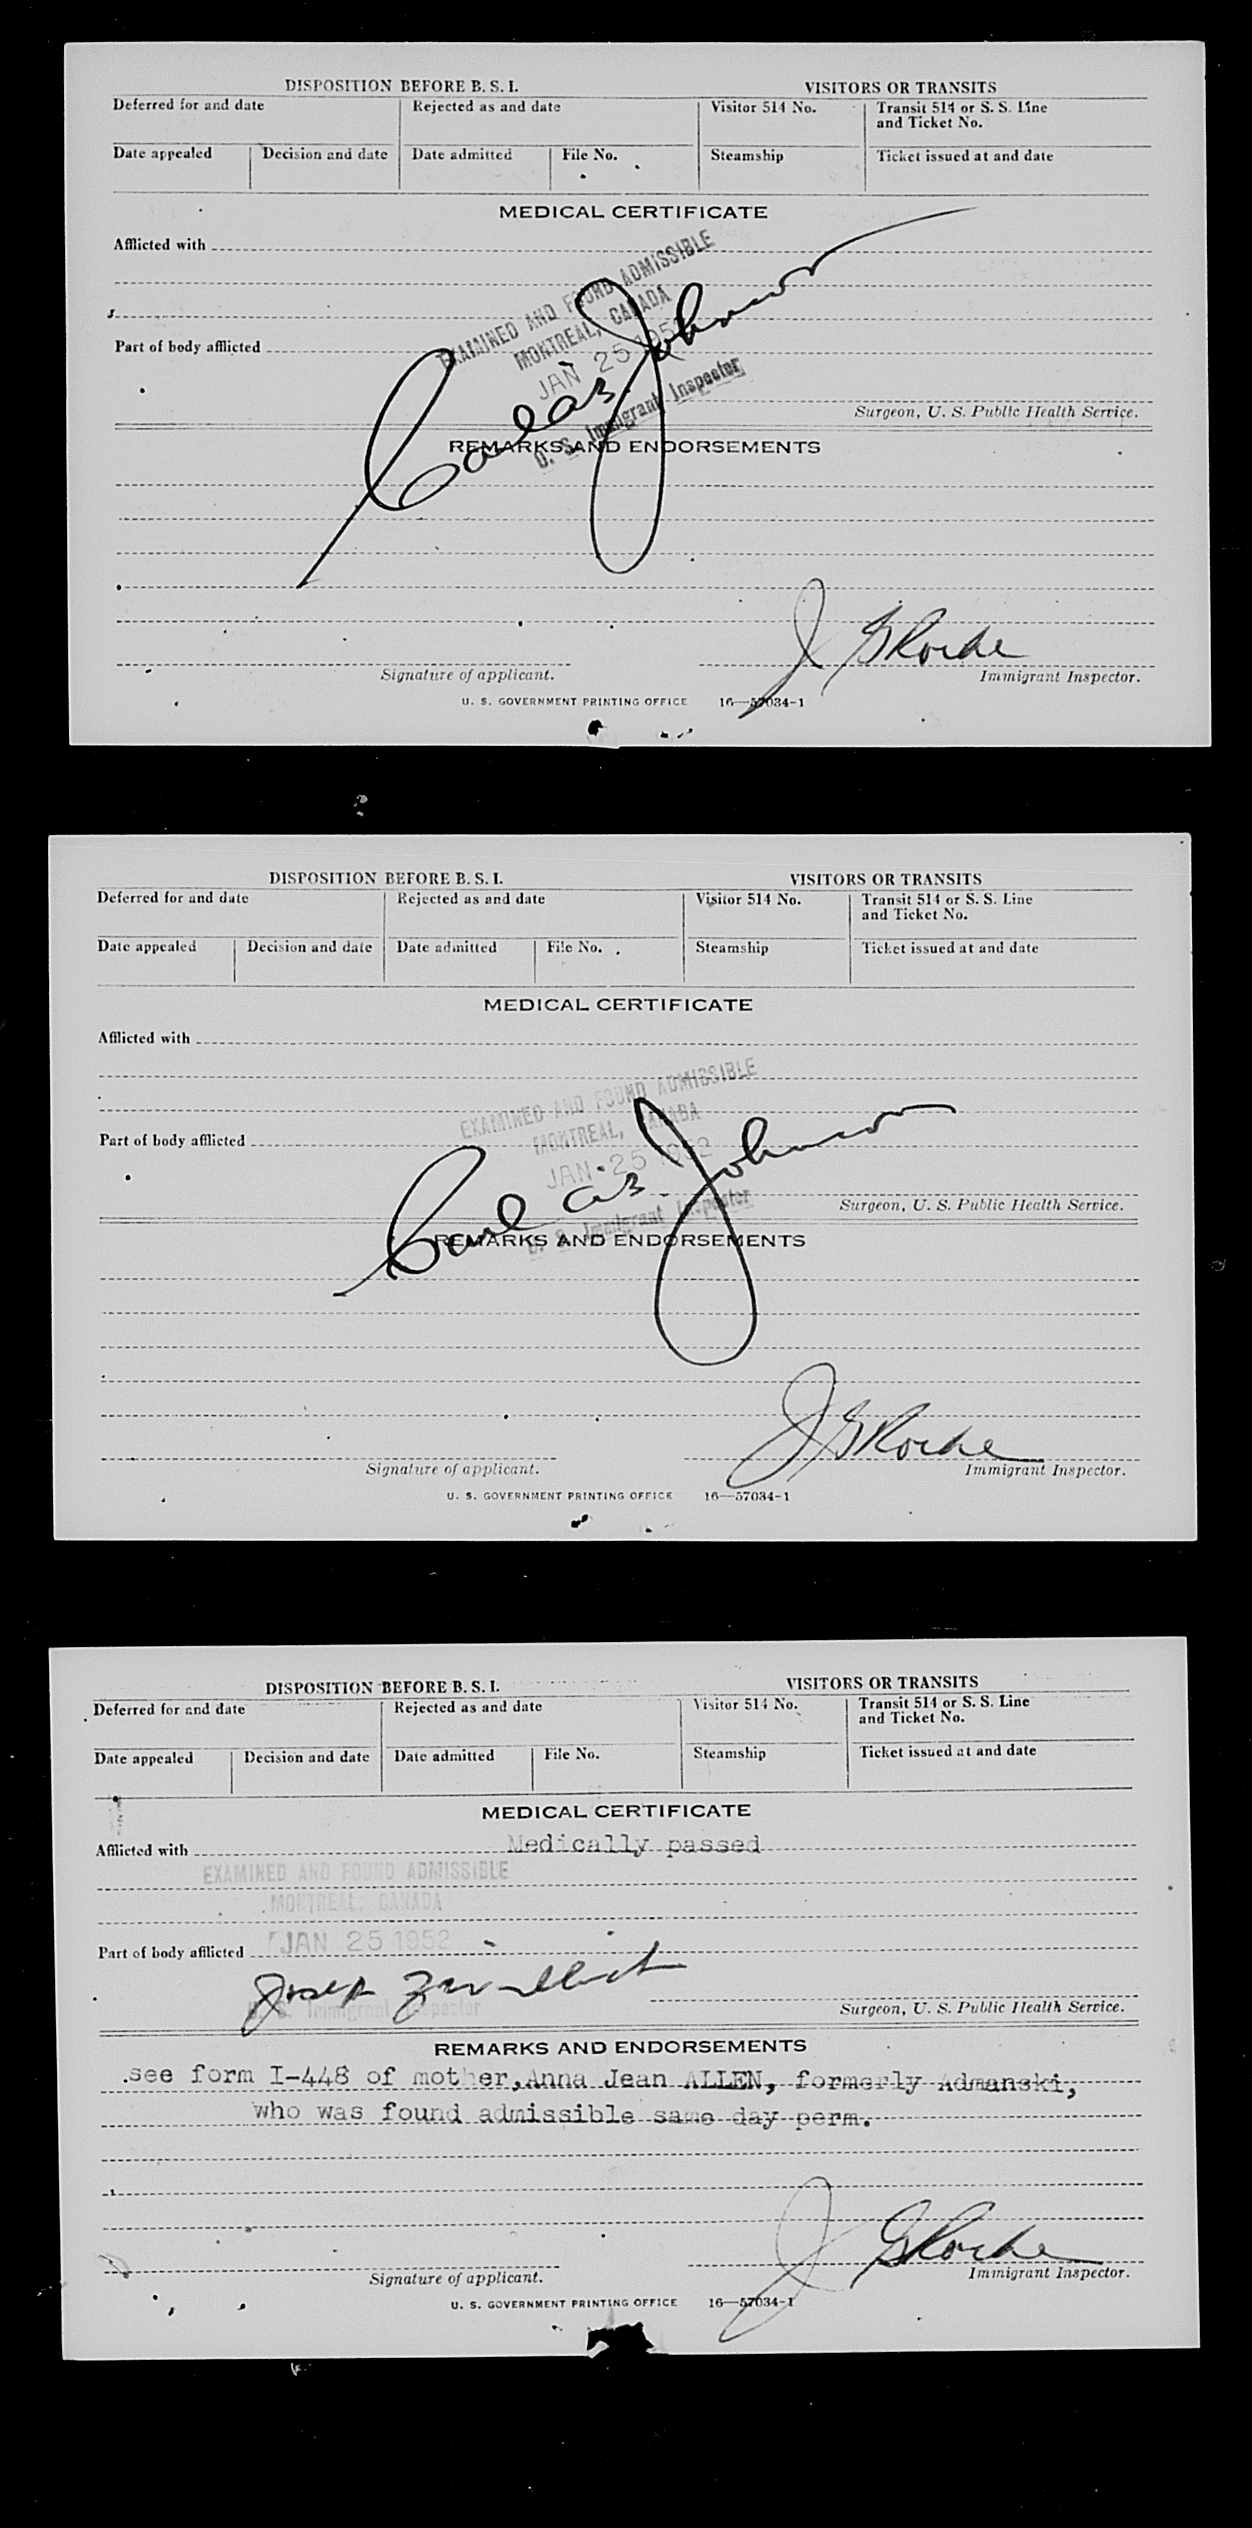 DISPOSITION BEFORE B. S. I.
VISITORS OR TRANSITS
Deferred for and date
Rejected as and date
Visitor 514 No.
Transit 514 or S. S. Line
and Ticket No.
Date appealed
Decision and date
Date admitted
File No.
Steamship
Ticket issued at and date
MEDICAL CERTIFICATE
Afflicted with
EXAMINED AND FOUND ADMISSIBLE
MONTREAL, CANADA
JAN 25 1952
Part of body afflicted
Johnson
U. S. Immigrant Inspector
Surgeon, U. S. Public Health Service.
REMARKS AND ENDORSEMENTS
J G Roche
Signature of applicant.
Immigrant Inspector.
U. S. GOVERNMENT PRINTING OFFICE 16—57034-1
DISPOSITION BEFORE B. S. I.
VISITORS OR TRANSITS
Deferred for and date
Rejected as and date
Visitor 514 No.
Transit 514 or S. S. Line
and Ticket No.
Date appealed
Decision and date
Date admitted
File No.
Steamship
Ticket issued at and date
MEDICAL CERTIFICATE
Afflicted with
EXAMINED AND FOUND ADMISSIBLE
MONTREAL, CANADA
JAN 25 1952
Part of body afflicted
Johnson
U. S. Immigrant Inspector
Surgeon, U. S. Public Health Service.
REMARKS AND ENDORSEMENTS
J G Roche
Signature of applicant.
Immigrant Inspector.
U. S. GOVERNMENT PRINTING OFFICE 16—57034-1
DISPOSITION BEFORE B. S. I.
VISITORS OR TRANSITS
Deferred for and date
Rejected as and date
Visitor 514 No.
Transit 514 or S. S. Line
and Ticket No.
Date appealed
Decision and date
Date admitted
File No.
Steamship
Ticket issued at and date
MEDICAL CERTIFICATE
Afflicted with Medically passed
EXAMINED AND FOUND ADMISSIBLE
MONTREAL, CANADA
JAN 25 1952
Part of body afflicted
Joseph
U. S. Immigrant Inspector
Surgeon, U. S. Public Health Service.
REMARKS AND ENDORSEMENTS
see form I-448 of mother, Anna Jean ALLEN, formerly Admanski,
who was found admissible same day perm.
J G Roche
Signature of applicant.
Immigrant Inspector.
U. S. GOVERNMENT PRINTING OFFICE 16—57034-1